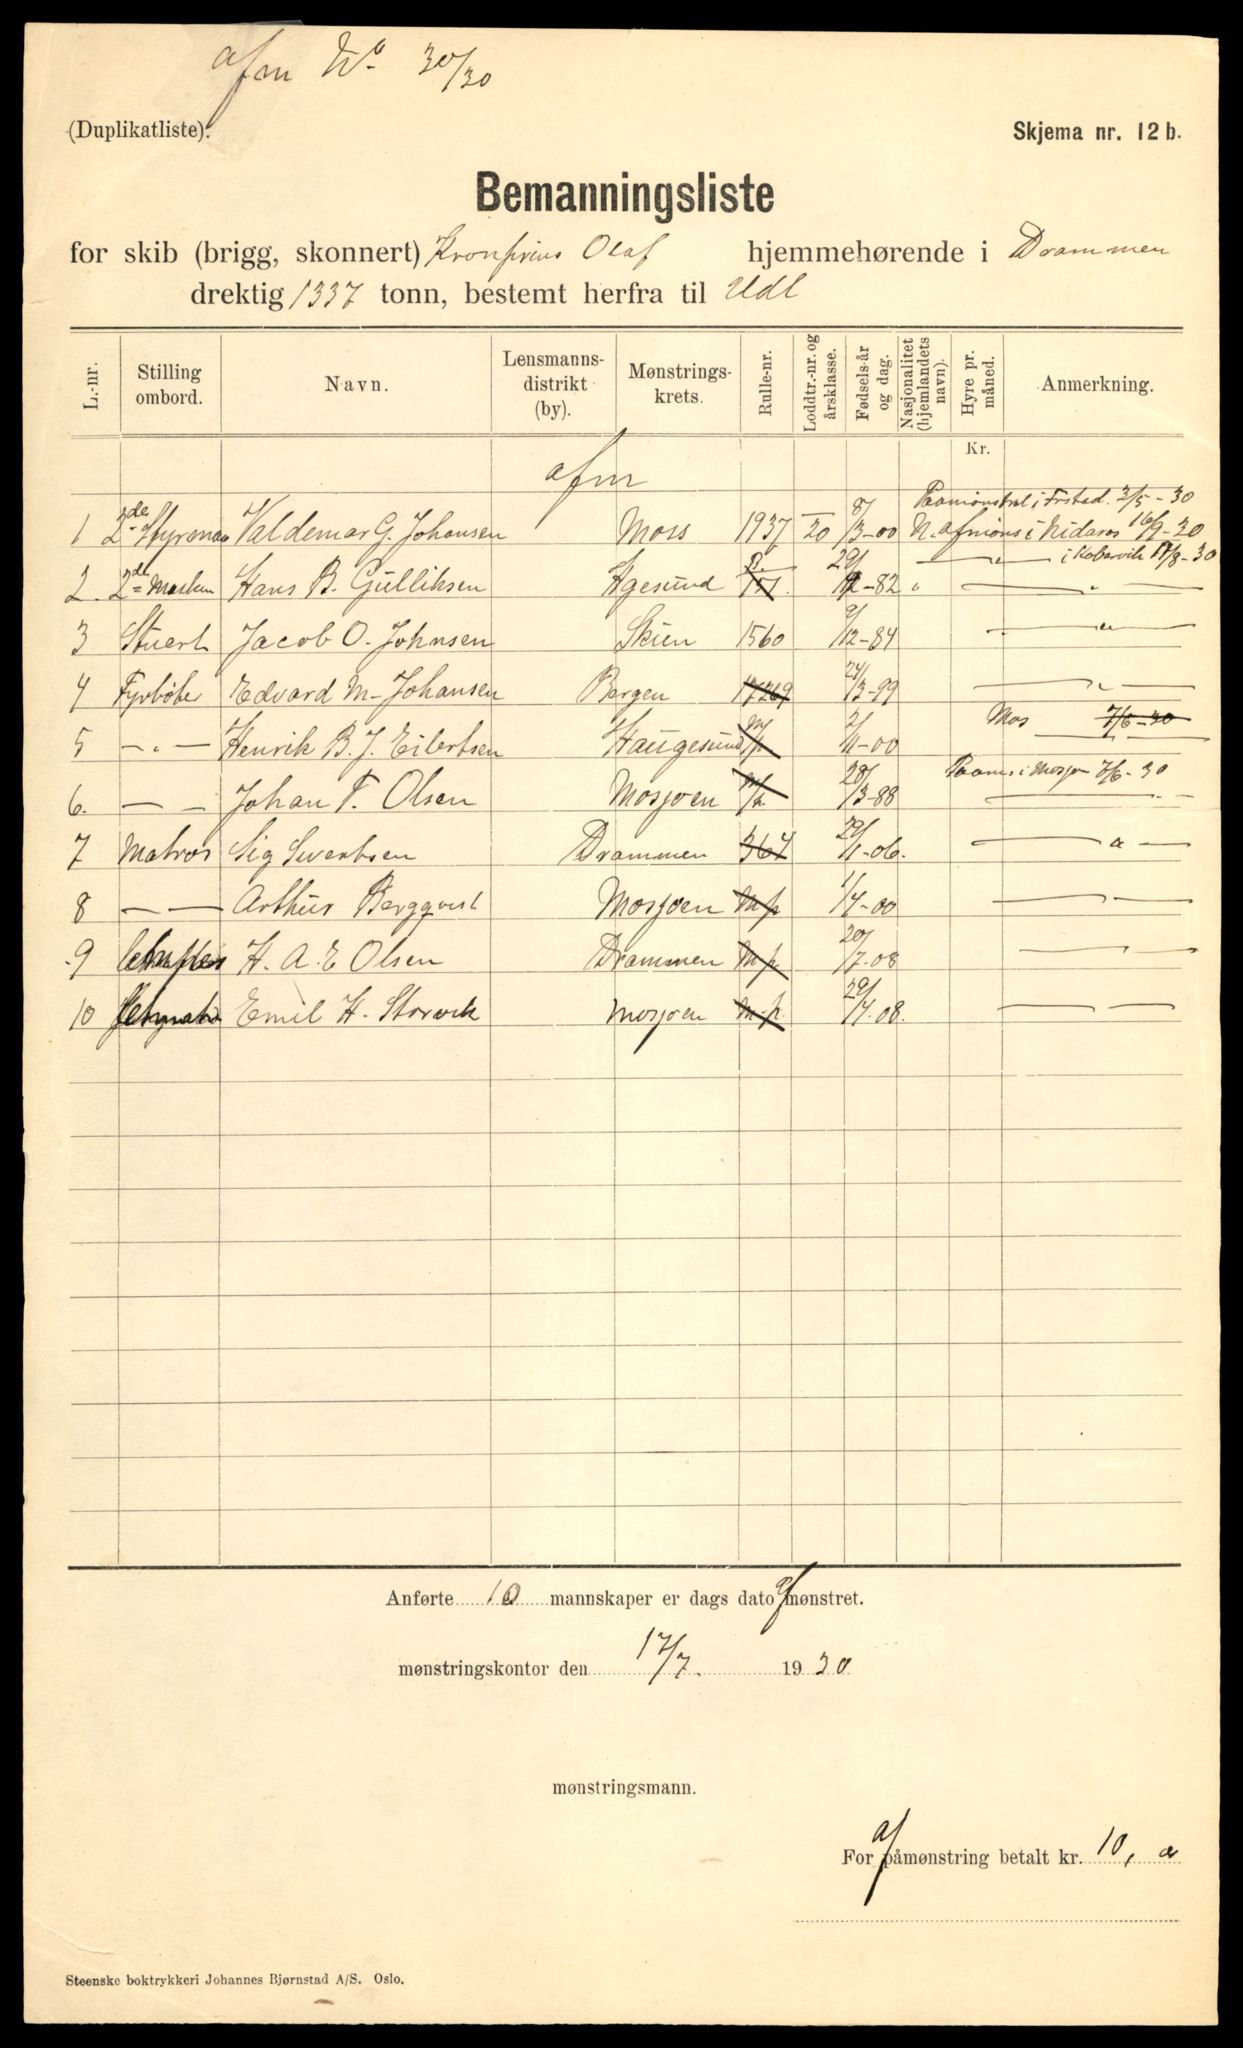 afm Wa 30/30
(Duplikatliste).
Skjema nr. 12 b.
Bemanningsliste
for skib (brigg, skonnert) Kronprins Olaf hjemmehørende i Drammen
drektig 1337 tonn, bestemt herfra til Udl
L.-nr. Stilling ombord. Navn. Lensmanns-distrikt (by). Mønstrings-krets. Rulle-nr. Loddtr.-nr. og årsklasse. Fødsels-år og dag. Nasjonalitet (hjemlandets navn). Hyre pr. måned. Anmerkning.
Kr.
afm
Paamønstret i Frstad. 3/5-30
1 2de Styrman Valdemar G. Johansen Moss 1937 20 8/3-00 N. afmøns i Nidaros 16/9-30
i Kobervik 17/8-30
2 2de Maskin Hans B. Gulliksen Hgesund 29/12-82 " — " —
3 Stuert Jacob O. Johnsen Skien 1560 9/12-84 — " —
4 Fyrbøter Edvard M. Johansen Bergen 17269 24/3-99 — " —
5 — " — Henrik B. J. Eilertsen Haugesund M/p 2/11-00 Mos 7/6-30
6. — — Johan F. Olsen Mosjoen 28/3-88 Paams i Mosjøen 7/6-30
7 Matros Sig Sivertsen Drammen 367 29/11-06. — " —
8 — — Arthur Bergqvist Mosjoen M/p 1/4-00 — —
9 H. A. E Olsen Drammen M/p 20/7-08 — —
10 Emil H. Storvik Mosjoen M.p. 29/4-08. — —
Anførte 10 mannskaper er dags dato af mønstret.
mønstringskontor den 17/7. 1930
mønstringsmann.
For af påmønstring betalt kr. 10,
Steenske boktrykkeri Johannes Bjørnstad A/S. Oslo.